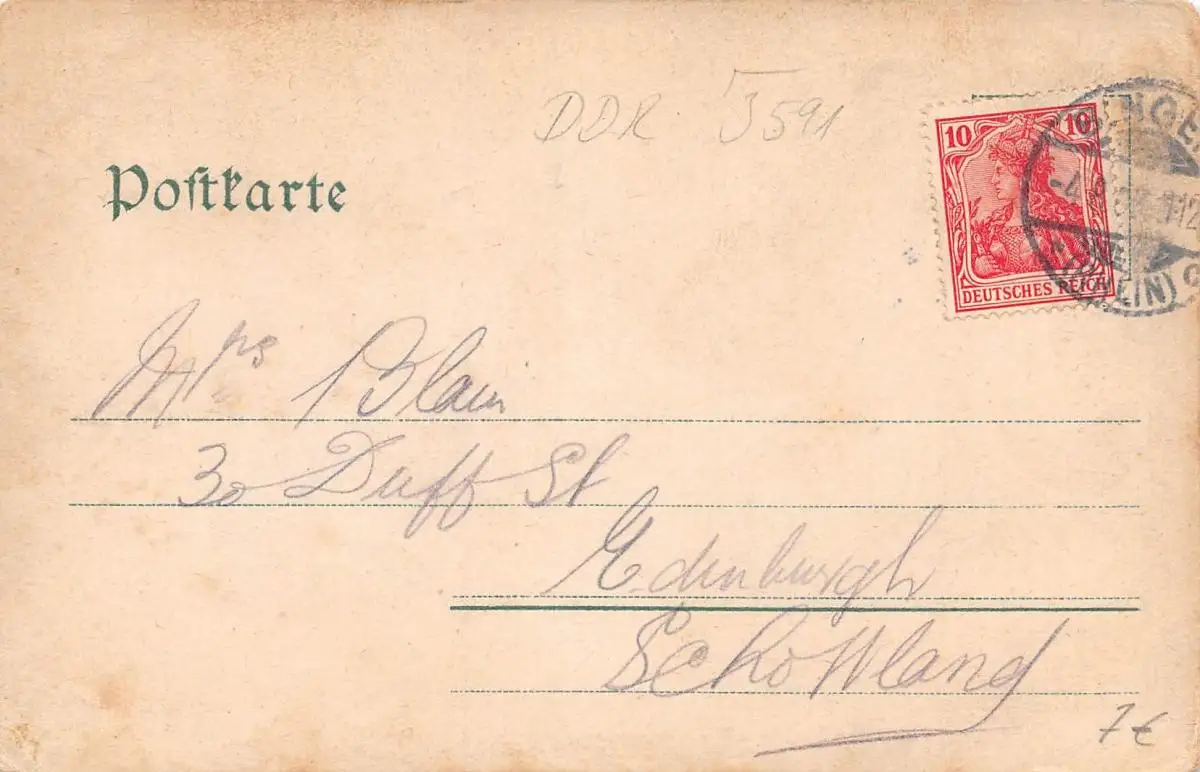 DDR J591
Poſtkarte
10 10
DEUTSCHES REICH
Mrs Blain
30 Duff St
Edinburgh
Schottland
7€